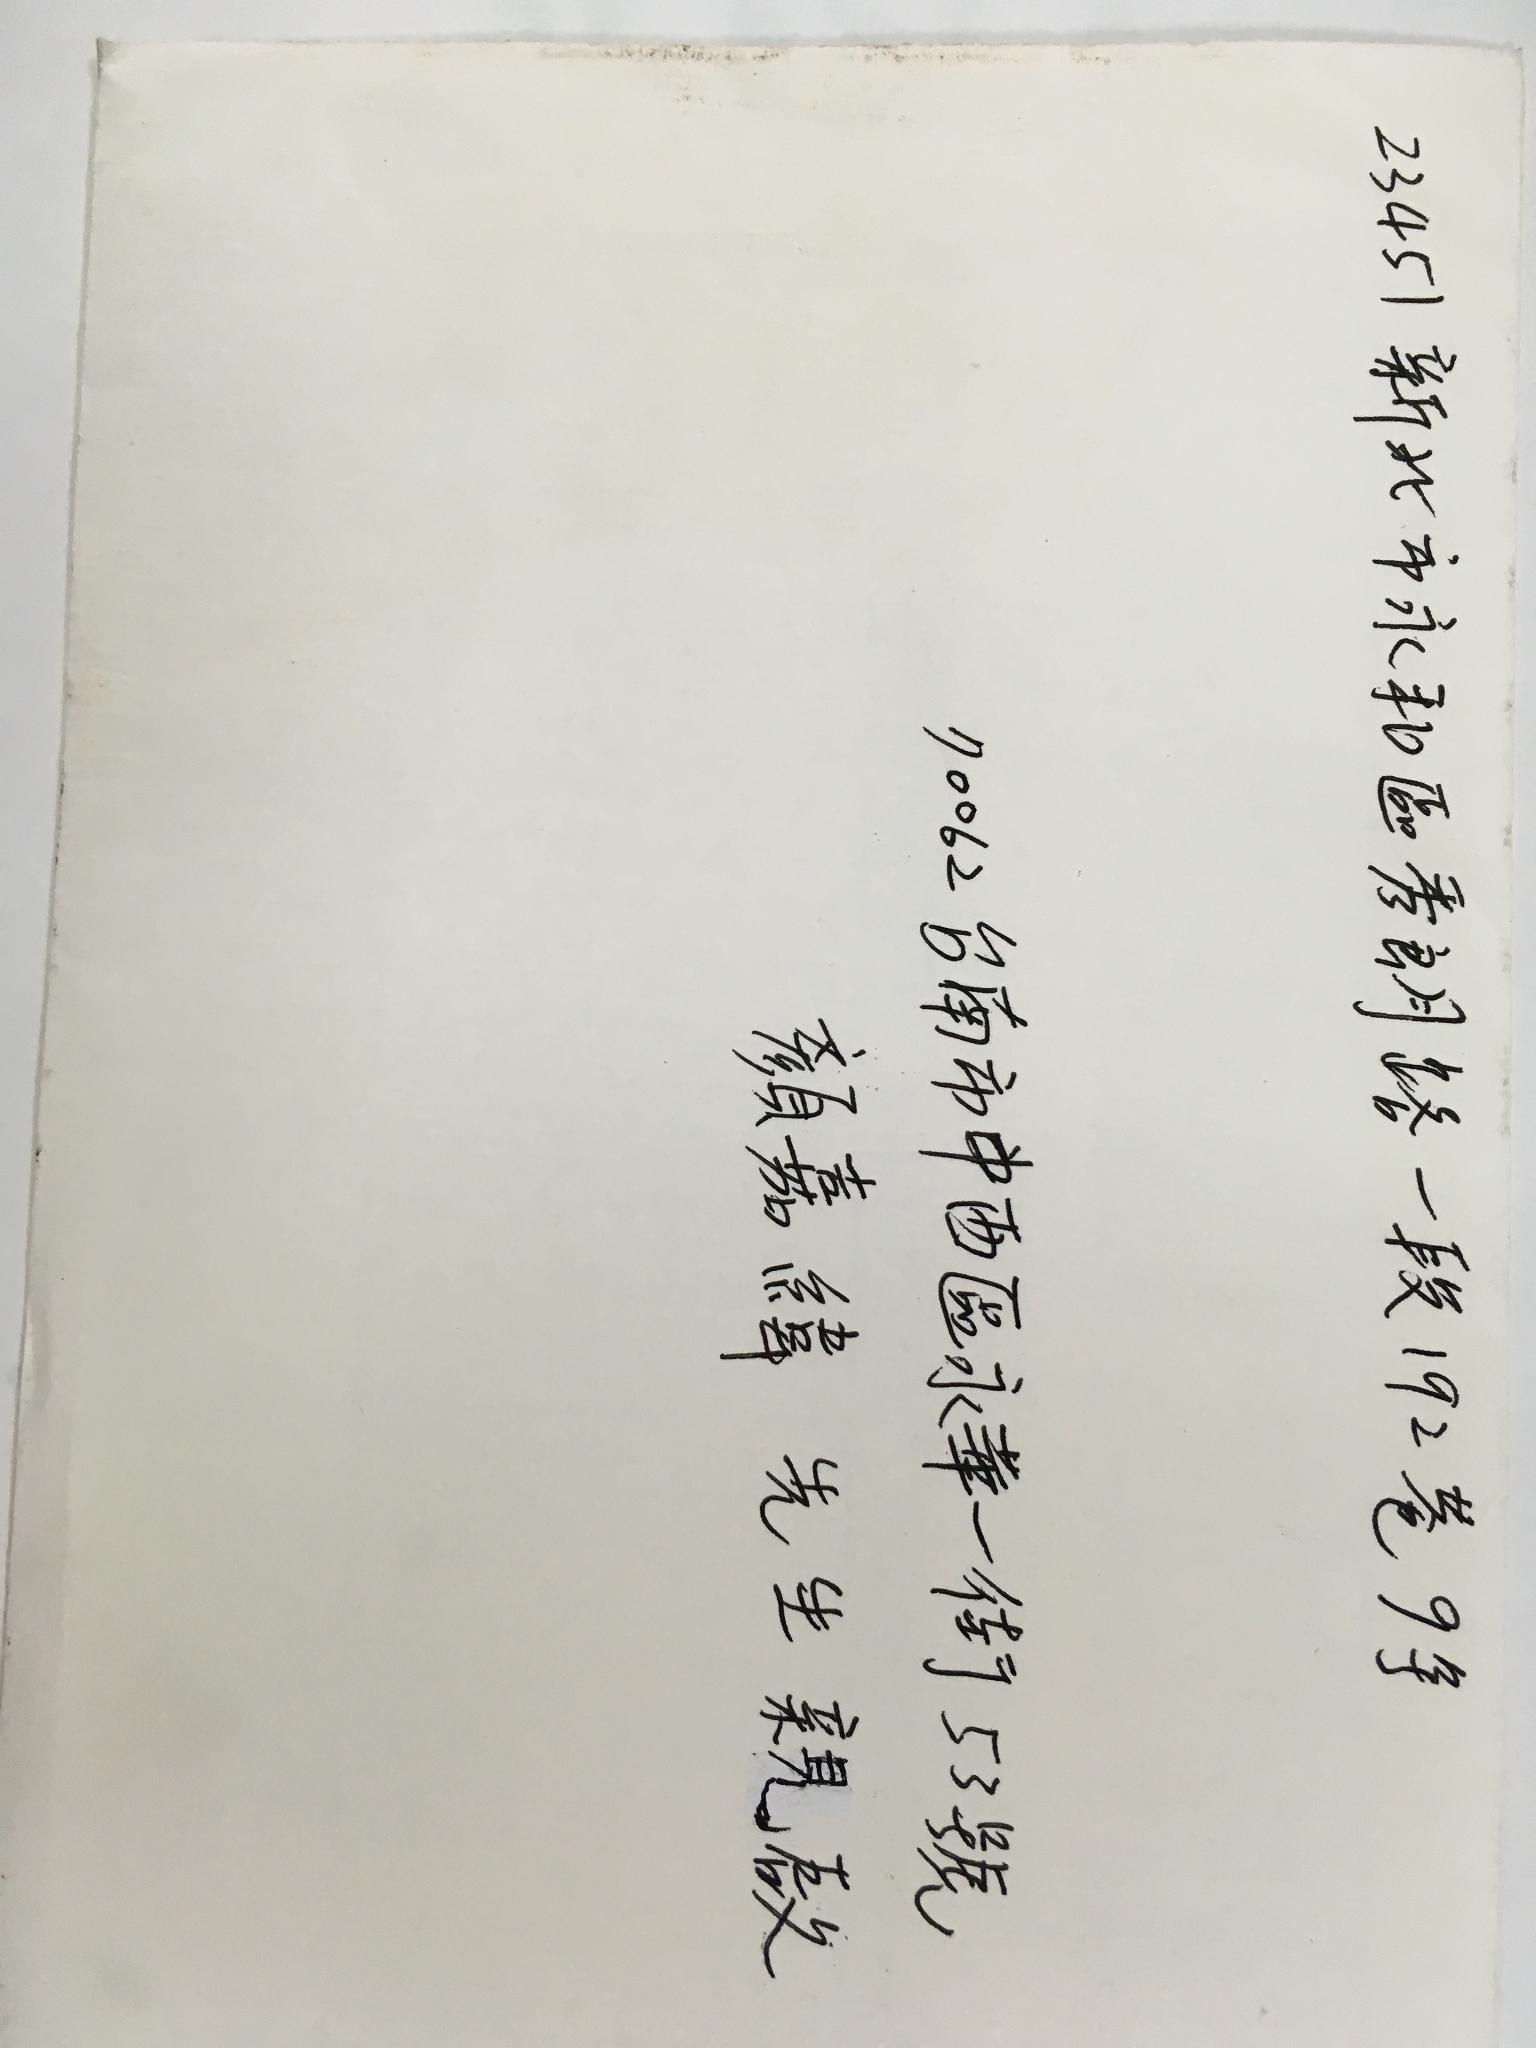 23451新北市永和區秀朗路一段192巷9号
70062台南市中西區永華一街53號
顏嘉緯 先生 親啟